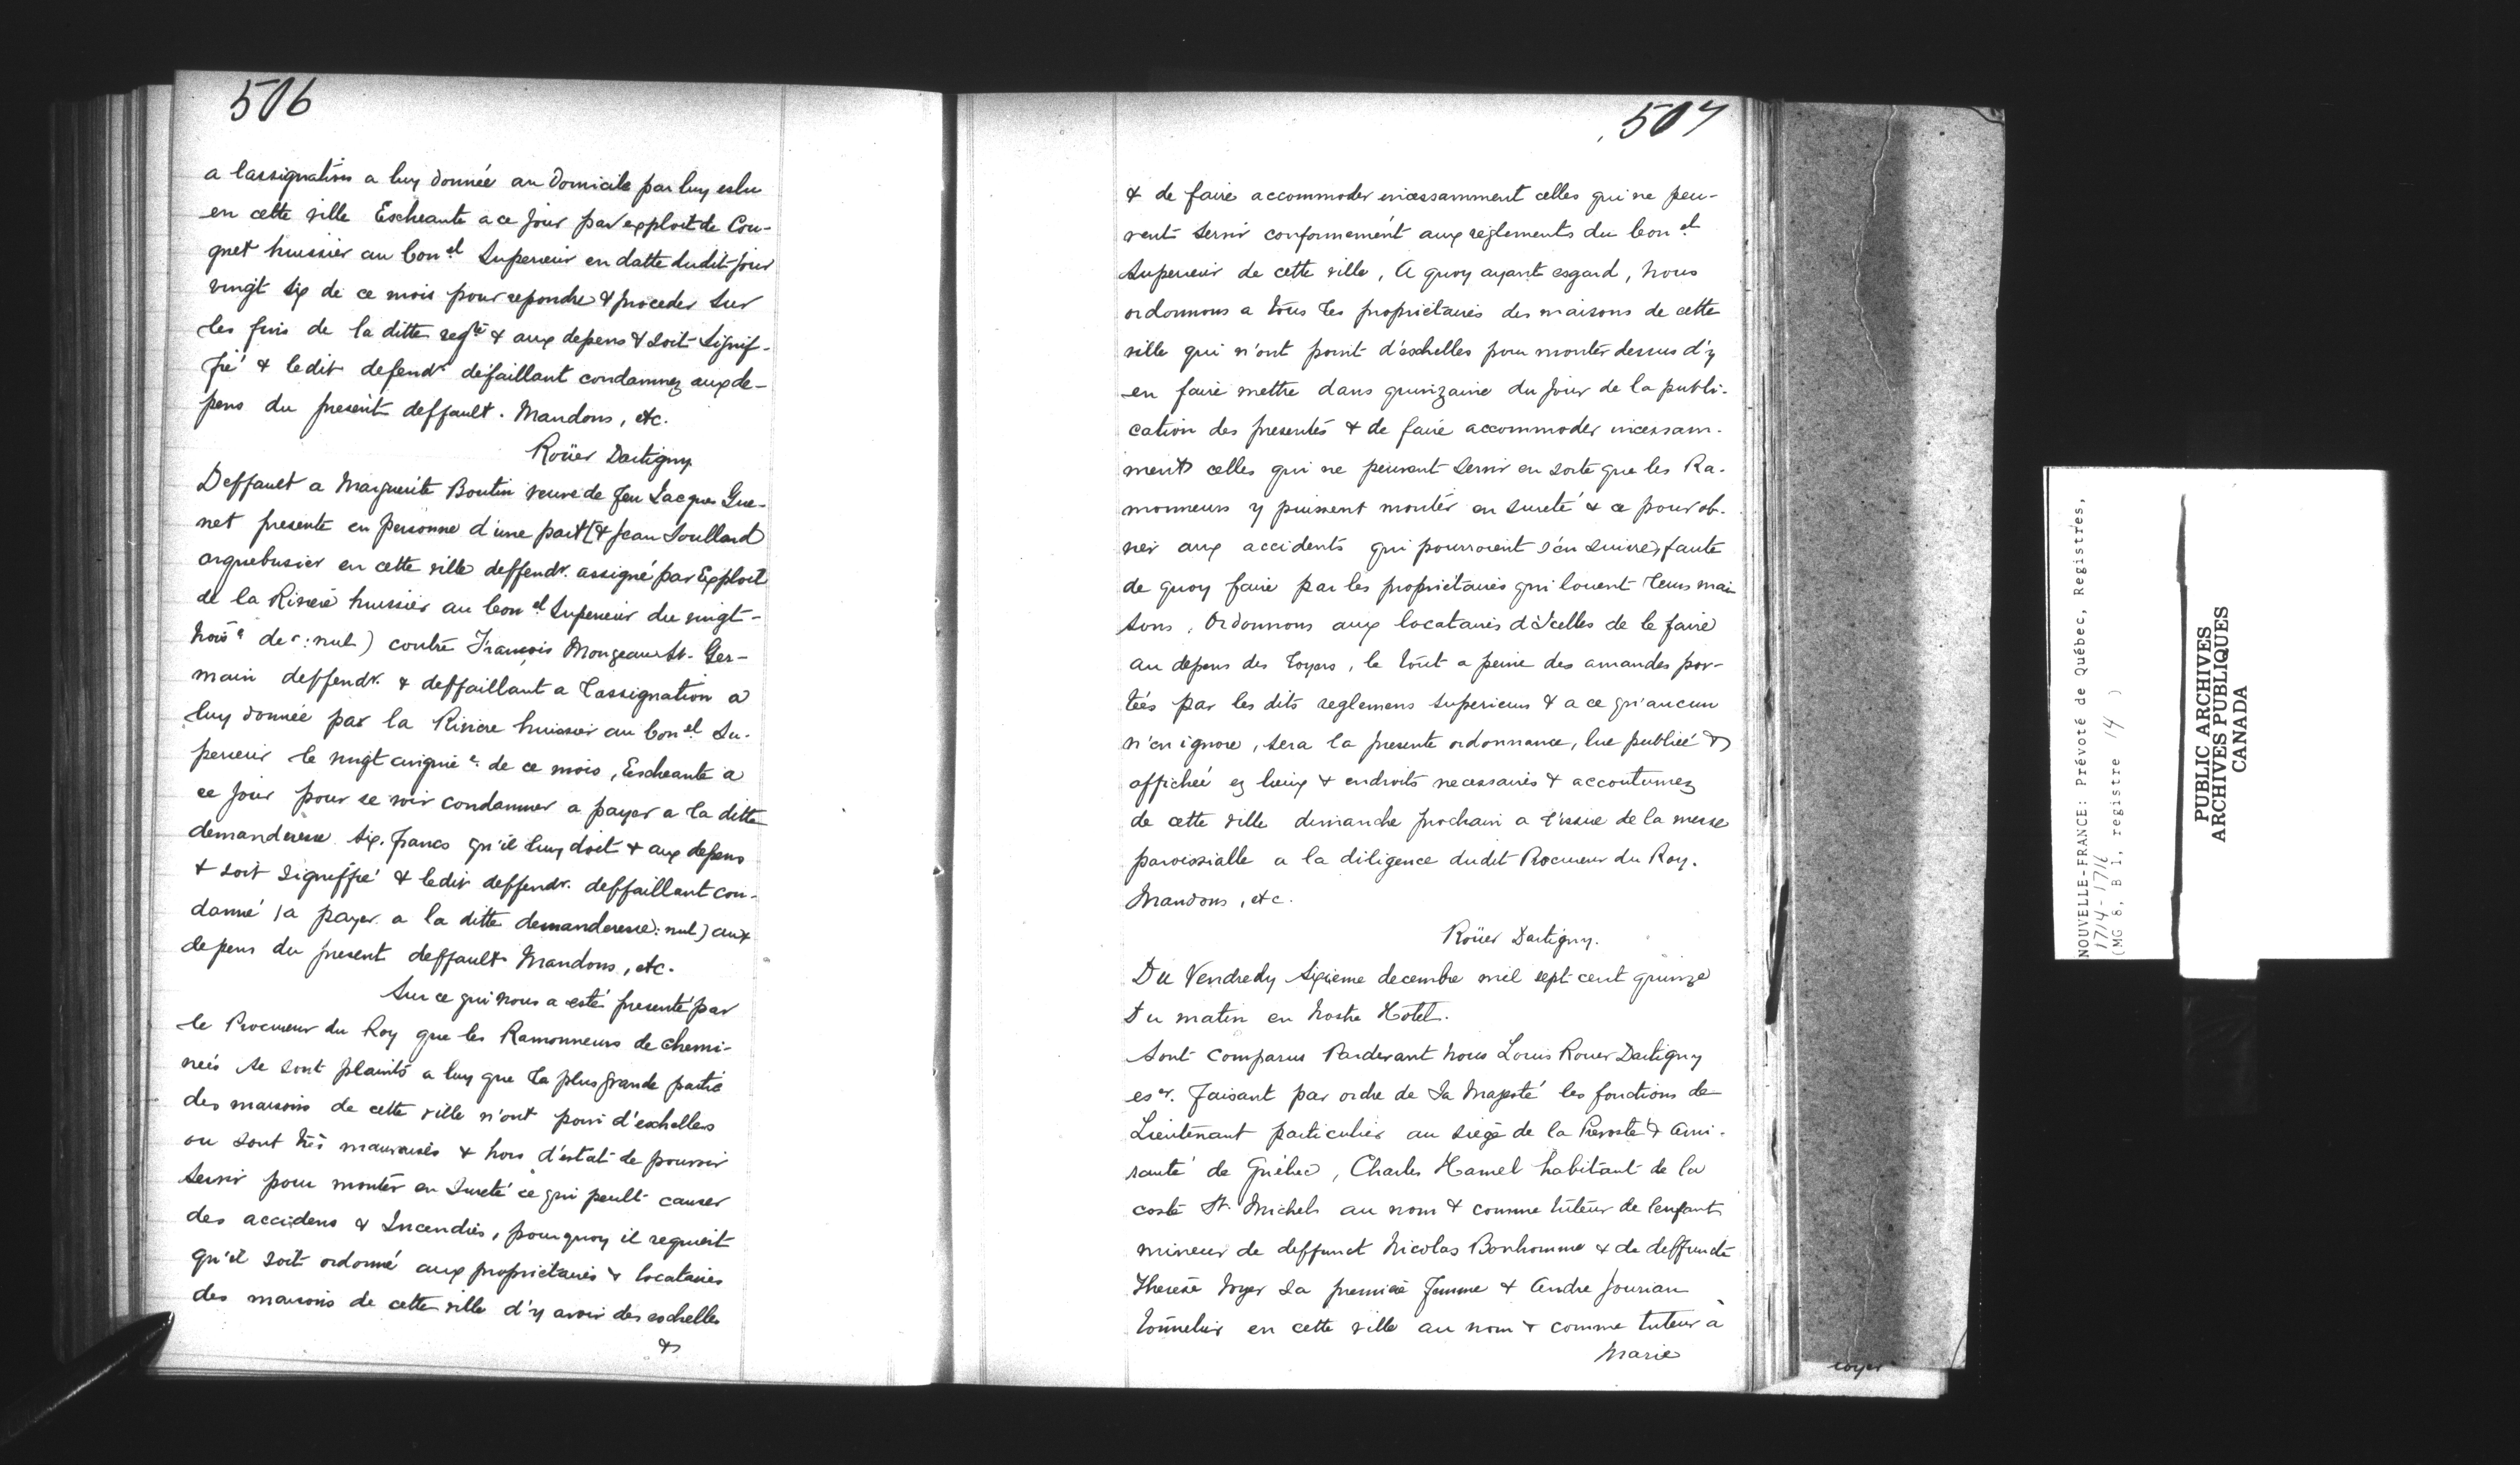 506
a lassignation a luy donnée au Domicile par luy eslu
en cette ville Escheante a ce jour par exploit de Cou-
gnet huissier au Con^el Superieur en datte dudit jour
vingt six de ce mois pour repondre & proceder sur
les fins de la ditte reqte & aux depens & soit signif-
fié & ledit defendr defaillant condamnez aux de-
pens du present deffault. Mandons, etc.
Roüer Dartigny
Deffault a Marguerite Boutin veuve de feu Jacques Gue-
net presente en personne d'une part [& Jean Soullard
arquebusier en cette ville deffendr. assigné par Exploit
de la Riviere huissier au Con^el Superieur du vingt-
trois^e de r: nul) contre François Mongeau St. Ger-
main deffendr. & deffaillant a l'assignation a
luy donnée par la Riviere huissier au Con^el Su-
perieur le vingt cinquie^e. de ce mois, Escheante a
ce jour pour se voir condamner a payer a la ditte
demanderesse six francs qu'il luy doit & aux depens
& soit signiffié & ledit deffendr. deffaillant con-
damné (a payer a la ditte demanderesse: nul) aux
depens du present deffault Mandons, etc.
Sur ce qui nous a esté presenté par
le Procureur du Roy que les Ramonneurs de chemi-
neés se sont plaints a luy que la plus grande partie
des maisons de cette ville n'ont poin d'eschelles
ou sont très mauvaises & hors d'estat de pouvoir
servir pour monter en Sureté ce qui peult causer
des accidens & Incendies, pourquoy il requiert
qu'il soit ordonné aux proprietaires & locataires
des maisons de cette ville d'y avoir des eschelles
&
507
& de faire accommoder incessamment celles qui ne peu-
vent servir conformement aux reglements du Con^el
Superieur de cette ville, A quoy ayant esgard, Nous
ordonnons a tous les proprietaires des maisons de cette
ville qui n'ont point d'eschelles pour monter dessus d'y
en faire mettre dans quinzaine du jour de la publi-
cation des presentes & de faire accommoder incessam-
ment celles qui ne peuvent servir en sorte que les Ra-
monneurs y puissent monter en sureté & ce pour ob-
vier aux accidents qui pourroient s'en suivre, faute
de quoy faire par les proprietaires qui louent leurs mai
sons, Ordonnons aux locataires d'icelles de le faire
au depens des loyers, le tout a peine des amandes por-
teés par les dits reglemens superieurs & a ce qu'aucun
n'en ignore, sera la presente ordonnance, lue publieé &
afficheé ez lieux & endroits necessaires & accoutumez
de cette ville dimanche prochain a l'issue de la messe
paroissialle a la diligence dudit Procureur du Roy.
Mandons, etc.
Roüer Dartigny.
Du Vendredy sixieme decembre mil sept cent quinze
Du matin en Nostre Hotel.
Sont comparus Pardevant Nous Louis Rouer Dartigny
esr. faisant par ordre de Sa Majesté les fonctions de
Lieutenant particulier au siege de la Prevosté & Ami-
rauté de Quebec, Charles Hamel habitant de la
coste St. Michel au nom & comme tuteur de lenfant
mineur de deffunct Nicolas Bonhomme & de deffuncte
Therese Voyer sa premiere femme & Andre
tonnelier en cette ville au nom & comme tuteur à
Marie
loyer
NOUVELLE-FRANCE: Prévoté de Québec, Registres,
1714-1716
(MG 8, B 1, registre 14 )
PUBLIC ARCHIVES
ARCHIVES PUBLIQUES
CANADA